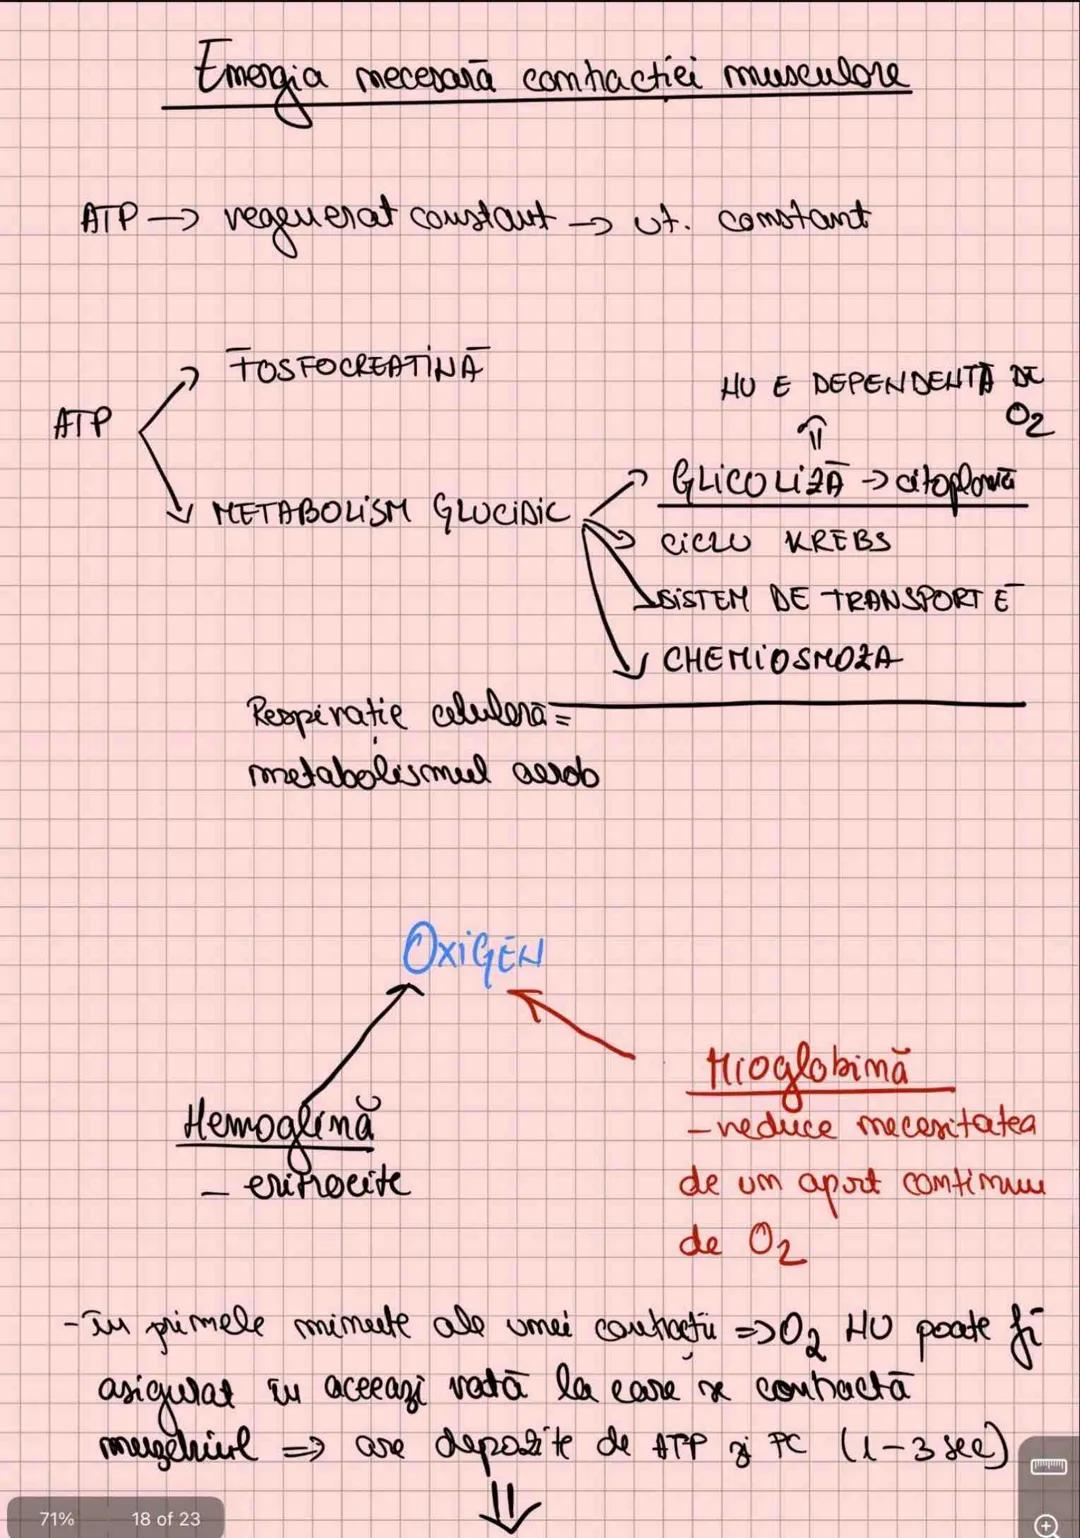 Energia necesară contracției musculare
ATP → regenerat constant → ut. constant
FOSFOCREATINĂ
NU E DEPENDENTĂ DE
O2
ATP
GLICOLIZĂ → citoplasmă
METABOLISM GLUCIDIC
CICLU KREBS
SISTEM DE TRANSPORT E⁻
CHEMIOSMOZA
Respirație celulară =
metabolismul aerob
OXIGEN
Mioglobină
Hemoglină
- reduce necesitatea
- eritrocite
de un aport continuu
de O2
- În primele minute ale unei contracții => O2 NU poate fi
asigurat în aceeași rată la care se contractă
mușchiul => are depozite de ATP și PC (1-3 sec)
71%
18 of 23